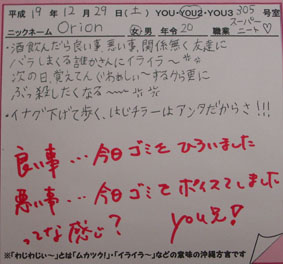 平成19年12月29日(土) YOU・YOU2・YOU3 305号室
ニックネーム Orion 女・男 年令20 職業 スーパーニート♡
・酒飲んだら良い事悪い事、関係無く友達に
バラしまくる誰かさんにイライラ〜
次の日、覚えてんぐわぁしぃーするから更に
ぶっ殺したくなる〜〜
・イナグ下げて歩く、はじチラーはアンタだからさ!!!
良い事…今日ゴミをひろいました
悪い事…今日ゴミをポイステしました
ってな感じ? you兄!
※「わじわじぃ〜」とは「ムカツク!」・「イライラ〜」などの意味の沖縄方言です